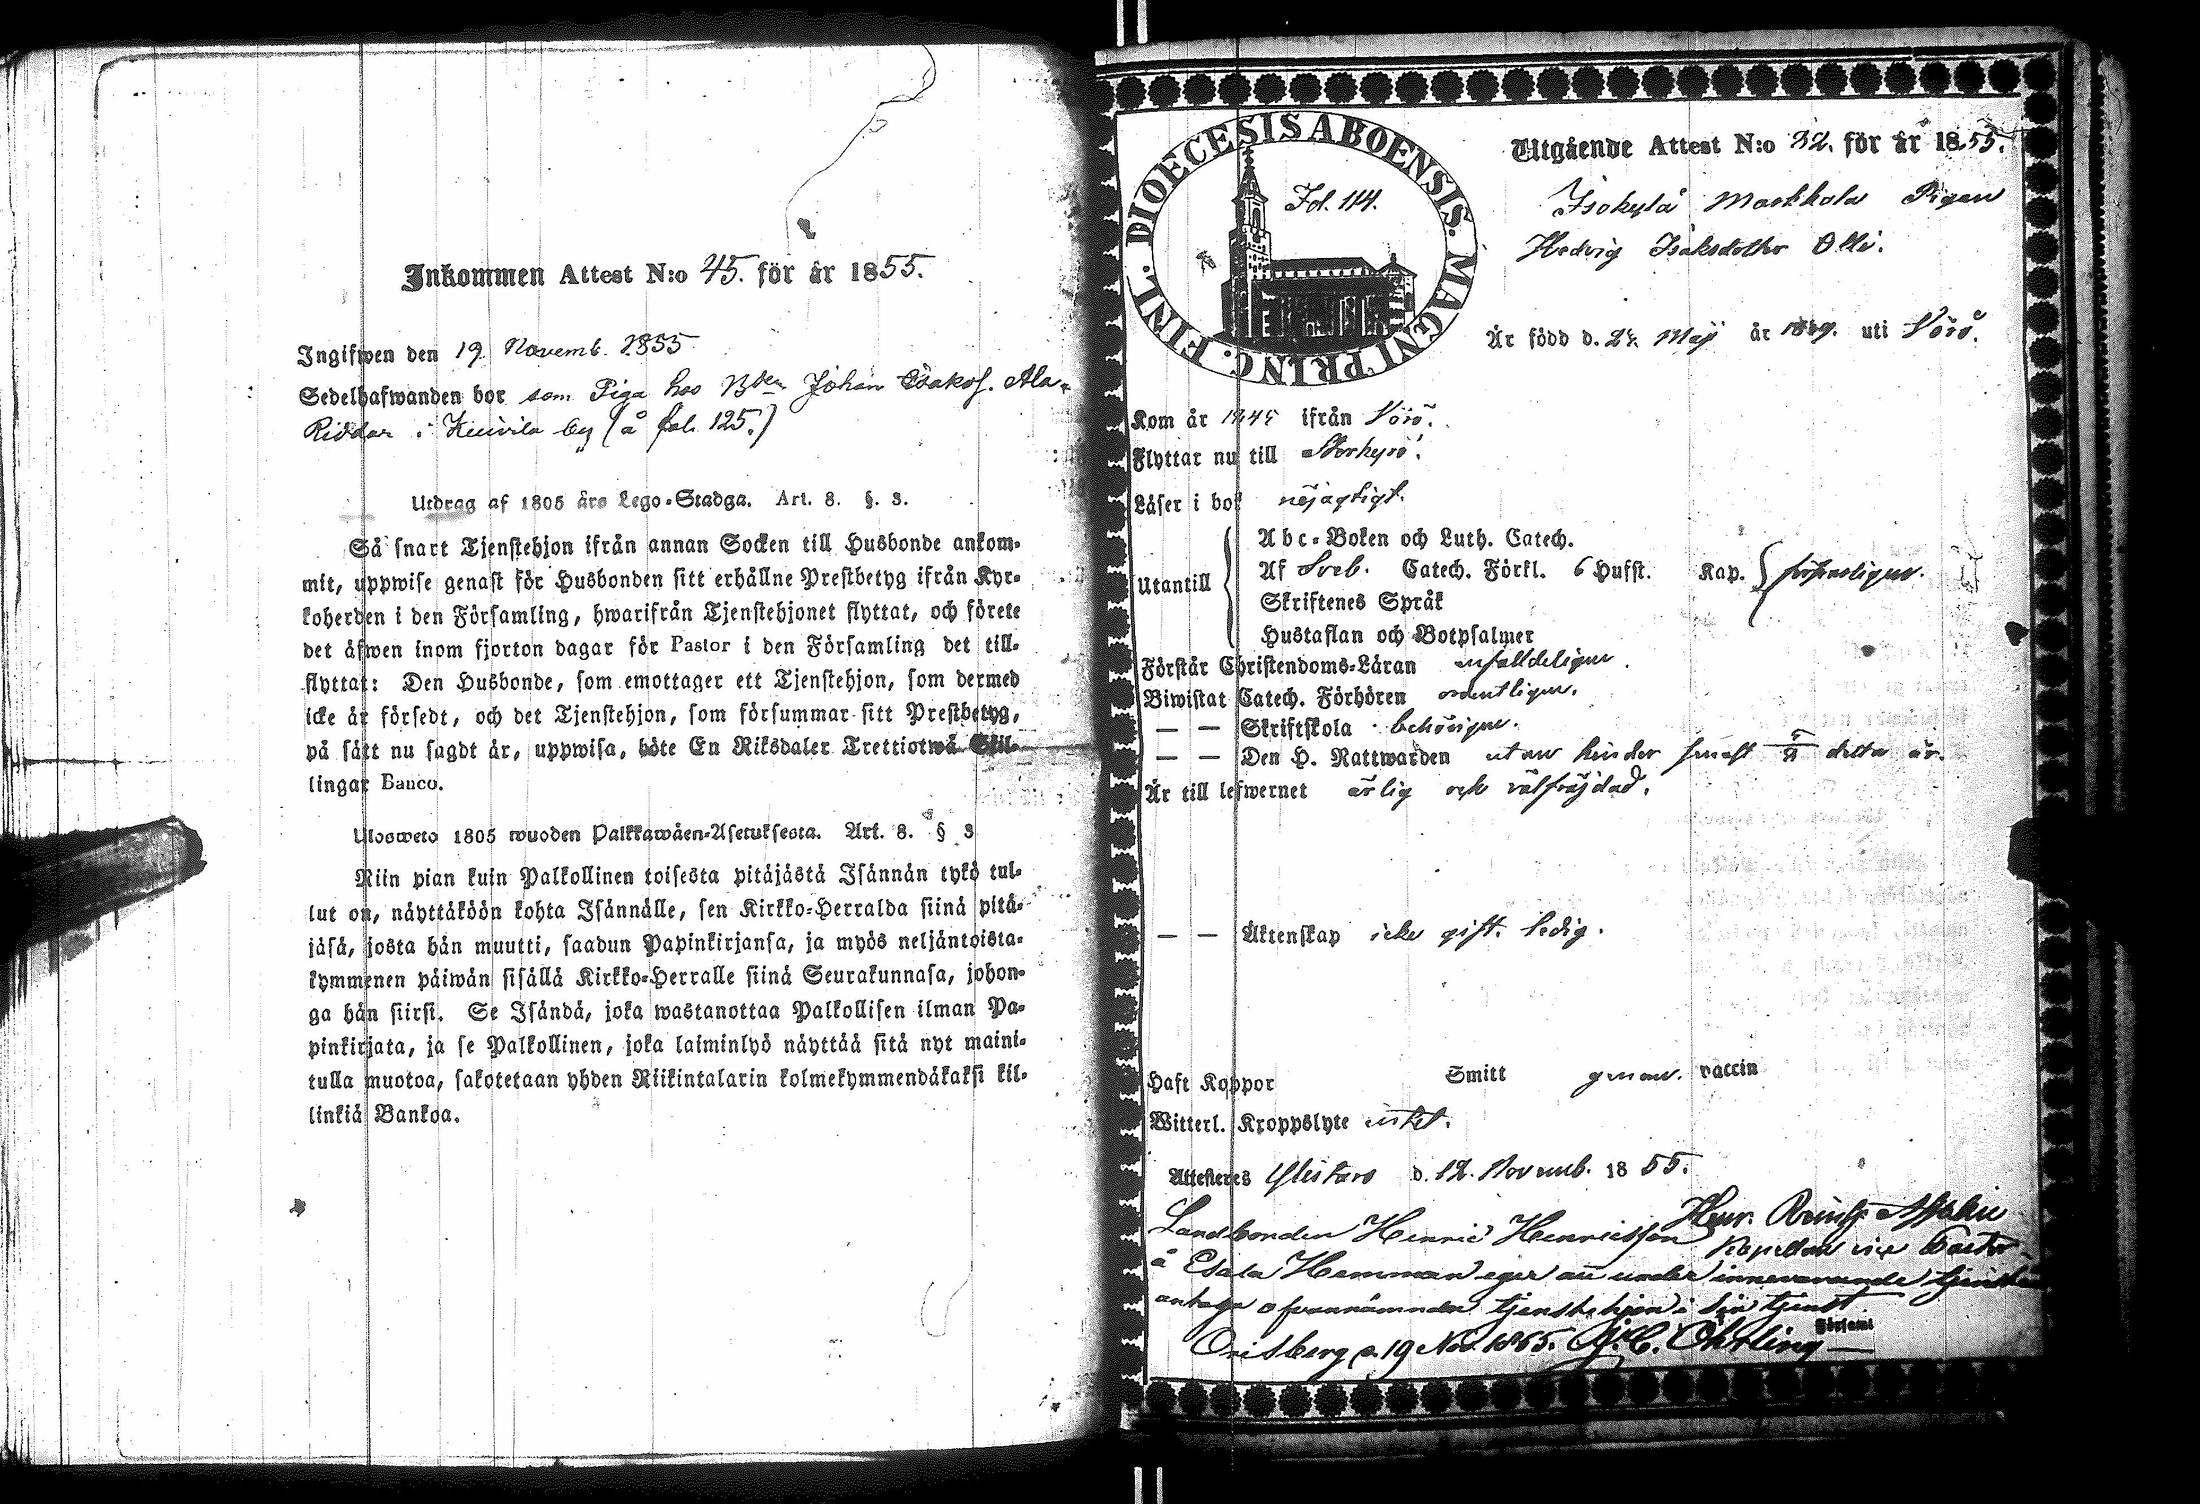 Inkommen Attest N:o 45. för år 1855.
Ingifwen den 19 Novemb. 1855
Sedelhafwanden bor som Piga hos Bden Johan Isaksf. Ala-
Riddar i Kuivila by (å fol. 125.)
Utdrag af 1805 års Lego-Stadga. Art. 8. §. 3.
Så snart Tjenstehjon ifrån annan Socken till Husbonde ankom-
mit, uppwise genast för Husbonden sitt erhållne Prestbetyg ifrån Kyr-
koherden i den Församling, hwarifrån Tjenstehjonet flyttat, och förete
det äfwen inom fjorton dagar för Pastor i den Församling det till-
flyttat: Den Husbonde, som emottager ett Tjenstehjon, som dermed
icke är försedt, och det Tjenstehjon, som försummar sitt Prestbetyg,
på sätt nu sagdt är, uppwisa, böte En Riksdaler Trettiotwå Skil-
lingar Banco.
Ulosweto 1805 wuoden Palkkawäen-Asetuksesta. Art. 8. § 3
Niin pian kuin Palkollinen toisesta pitäjästä Isännän tykö tul-
lut on, näyttäköön kohta Isännälle, sen Kirkko-Herralda siinä pitä-
jäsä, josta hän muutti, saadun Papinkirjansa, ja myös neljäntoista-
kymmenen päiwän sisällä Kirkko-Herralle siinä Seurakunnasa, johon-
ga hän siirsi. Se Isändä, joka wastanottaa Palkollisen ilman Pa-
pinkirjata, ja se Palkollinen, joka laiminlyö näyttää sitä nyt maini-
tulla muotoa, sakotetaan yhden Riikintalarin kolmekymmendäkaksi kil-
linkiä Bankoa.
DIOECESIS ABOENSIS. MAGNI PRINC. FINL.
Fol. 114.
Utgående Attest N:o 32. för år 1855.
Isokylä Markkola Pigan
Hedvig Isaksdotter Olli.
Är född d. Maji år uti Vörå.
Kom år ifrån Vörå.
Flyttar nu till Storkyrö.
Läser i bok nöjagtigt.
Utantill
Abc-Boken och Luth. Catech.
Af Sveb. Catech. Förkl. 6 Hufst. Kap. försvarligen.
Skriftenes Språk
Hustaflan och Botpsalmer
Förstår Christendoms-Läran enfaldeligen.
Biwistat Catech. Förhören ordentligen.
— — Skriftskola behörigen.
— — Den H. Nattwarden utan hinder senast detta år.
Är till lefwernet ärlig och välfräjdad.
— — Äktenskap icke gift. ledig.
Haft Koppor Smitt genom vaccin
Witterl. Kroppslyte intet.
Attesteras Ylistaro d. 12. Novemb. 1855.
Henr.
Landbonden Henric Henricsson
Kapellan vice Pastor
å Esala Hemman eger att under innevarande
antaga ofvannämnda tjenstehjon i sin tjenst.
Församl
Orisberg d. 19 Nov. 1855. Öhrling